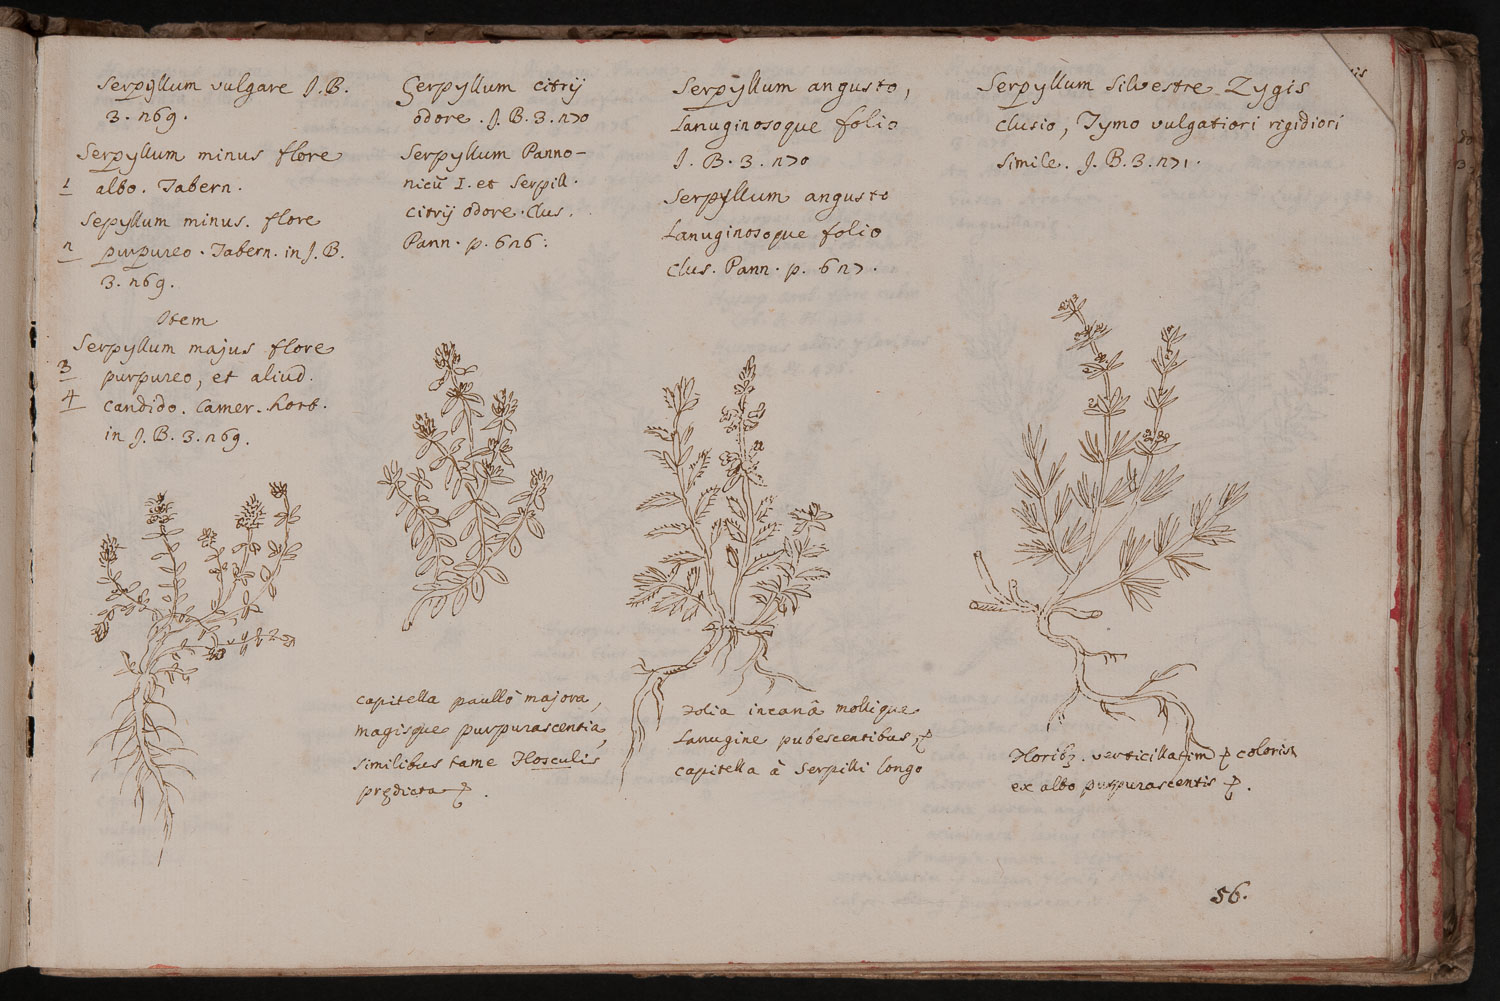 Serpyllum vulgare J.B.
3. 269.
Serpyllum minus flore
1 albo. Tabern.
Sepyllum minus. flore
2 purpureo. Tabern. in J.B.
3. 269.
Item
Serpyllum majus flore
3 purpureo, et aliud.
4 candido. Camer. hort.
in J.B. 3. 269.
Serpyllum citrij
odore. J.B. 3. 270
Serpyllum Panno-
nicū I. et Serpill.
citrij odore. Clus.
Pann. p. 626.
capitella paullò majora,
magisque purpurascentia,
similibus tame flosculis
prędicta
Serpyllum angusto,
Lanuginosoque folio
J. B. 3. 270
Serpyllum angusto
Lanuginosoque folio
Clus. Pann. p. 627.
Folia incanâ mollique
Lanugine pubescentibus,
capitella à Serpilli longo
Serpyllum silvestre Zygis
Clusio, Tymo vulgatiori rigidiori
simile. J.B. 3. 271.
Floribz. verticillatim coloris
ex albo purpurascentis
56.